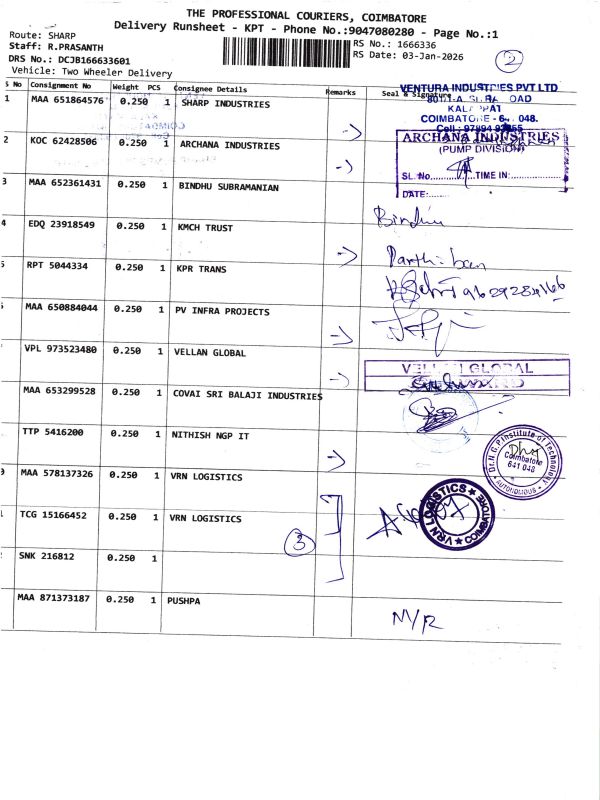 THE PROFESSIONAL COURIERS, COIMBATORE
Delivery Runsheet - KPT - Phone No.:9047080280 - Page No.:1
Route: SHARP
Staff: R.PRASANTH
DRS No.: DCJB166633601
Vehicle: Two Wheeler Delivery
RS No.: 1666336
RS Date: 03-Jan-2026
2
S No Consignment No Weight PCS Consignee Details Remarks Seal & Signature
1 MAA 651864576 0.250 1 SHARP INDUSTRIES
VENTURA INDUSTRIES PVT LTD
COIMBATORE - 048.
2 KOC 62428506 0.250 1 ARCHANA INDUSTRIES
ARCHANA INDUSTRIES
(PUMP DIVISION)
SL. No. TIME IN:
DATE:
3 MAA 652361431 0.250 1 BINDHU SUBRAMANIAN
Bindhu
4 EDQ 23918549 0.250 1 KMCH TRUST
5 RPT 5044334 0.250 1 KPR TRANS
MAA 650884044 0.250 1 PV INFRA PROJECTS
VPL 973523480 0.250 1 VELLAN GLOBAL
VELLAN GLOBAL
MAA 653299528 0.250 1 COVAI SRI BALAJI INDUSTRIES
TTP 5416200 0.250 1 NITHISH NGP IT
Dr.N.G.P.Institute of Technology
Coimbatore
641 048
AUTONOMOUS
MAA 578137326 0.250 1 VRN LOGISTICS
TCG 15166452 0.250 1 VRN LOGISTICS
VRN LOGISTICS
COIMBATORE
3
SNK 216812 0.250 1
MAA 871373187 0.250 1 PUSHPA
N/R